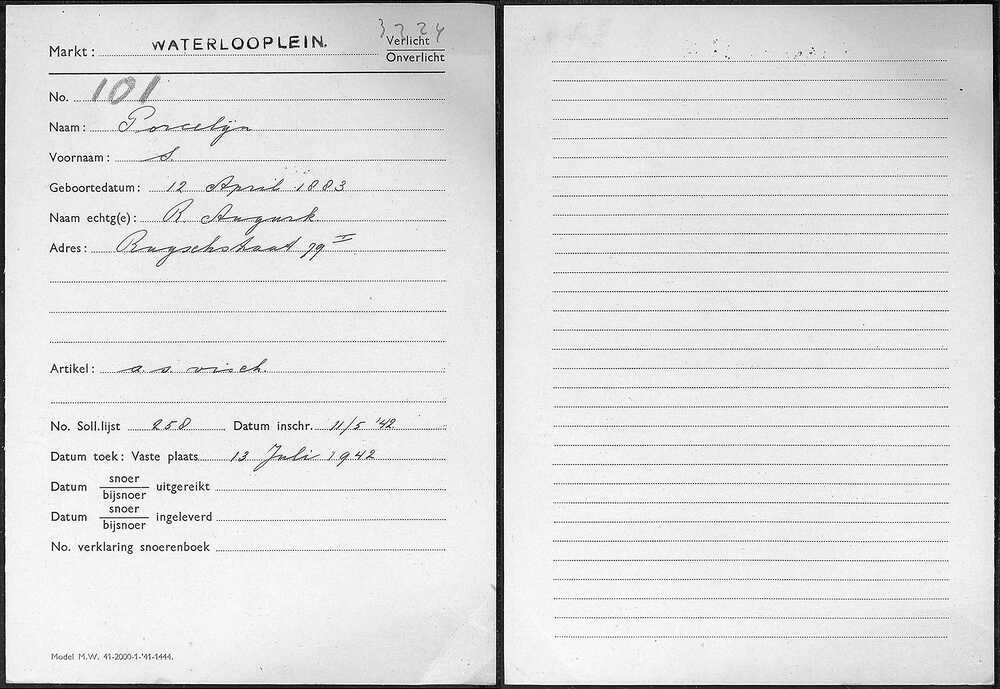 3 7 24
Markt: WATERLOOPLEIN. Verlicht
Onverlicht
No. 101
Naam: Porcelijn
Voornaam: S.
Geboortedatum: 12 April 1883
Naam echtg(e): R. Augurk
Adres: Ruyschstraat 79 I
Artikel: a.s. visch.
No. Soll.lijst 258 Datum inschr. 11/5 '42
Datum toek: Vaste plaats 13 Juli 1942
Datum snoer/bijsnoer uitgereikt
Datum snoer/bijsnoer ingeleverd
No. verklaring snoerenboek
Model M.W. 41-2000-1-'41-1444.